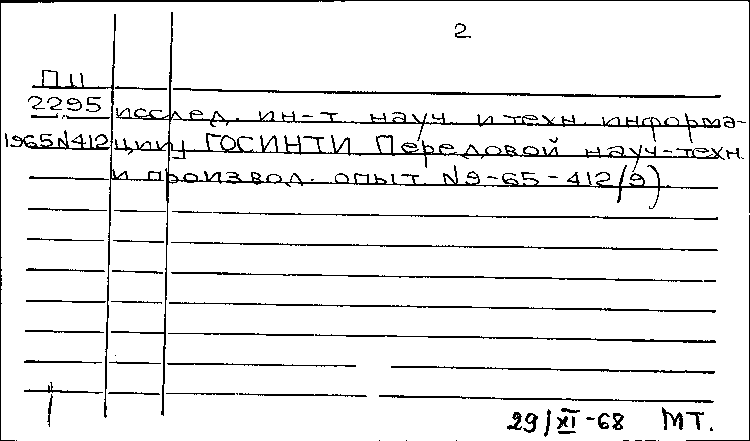 2
П 11
2295 исслед. ин-т науч. и техн. информа-
1965 N412 ции ГОСИНТИ Передовой науч-техн.
и производ. опыт. N9-65-412/9).
29/XI-68 МТ.